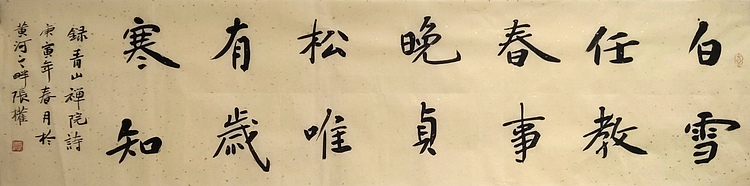 白雪
任教
春事
晚貞
松唯
有歲
寒知
録青山禪院詩
庚寅年春月於
黄河之畔張權